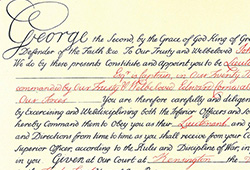 George the Second, by the Grace of God King of Gre
Defender of the Faith &c. To Our Trusty and Welbeloved
We do by these presents Constitute and Appoint you to be Lieute
Esqr. a Captain, in Our Twenty
commanded by Our Trusty & Welbeloved
Our Forces You are therefore carefully and diligen
by Exercising and Welldisciplining both the Inferior Officers and So
hereby Command them to Obey you as their Lieutenant and
and Directions from time to time as you shall receive from your Ca
Superior Officer, according to the Rules and Discipline of War, in
in you Given at Our Court at Kensington the